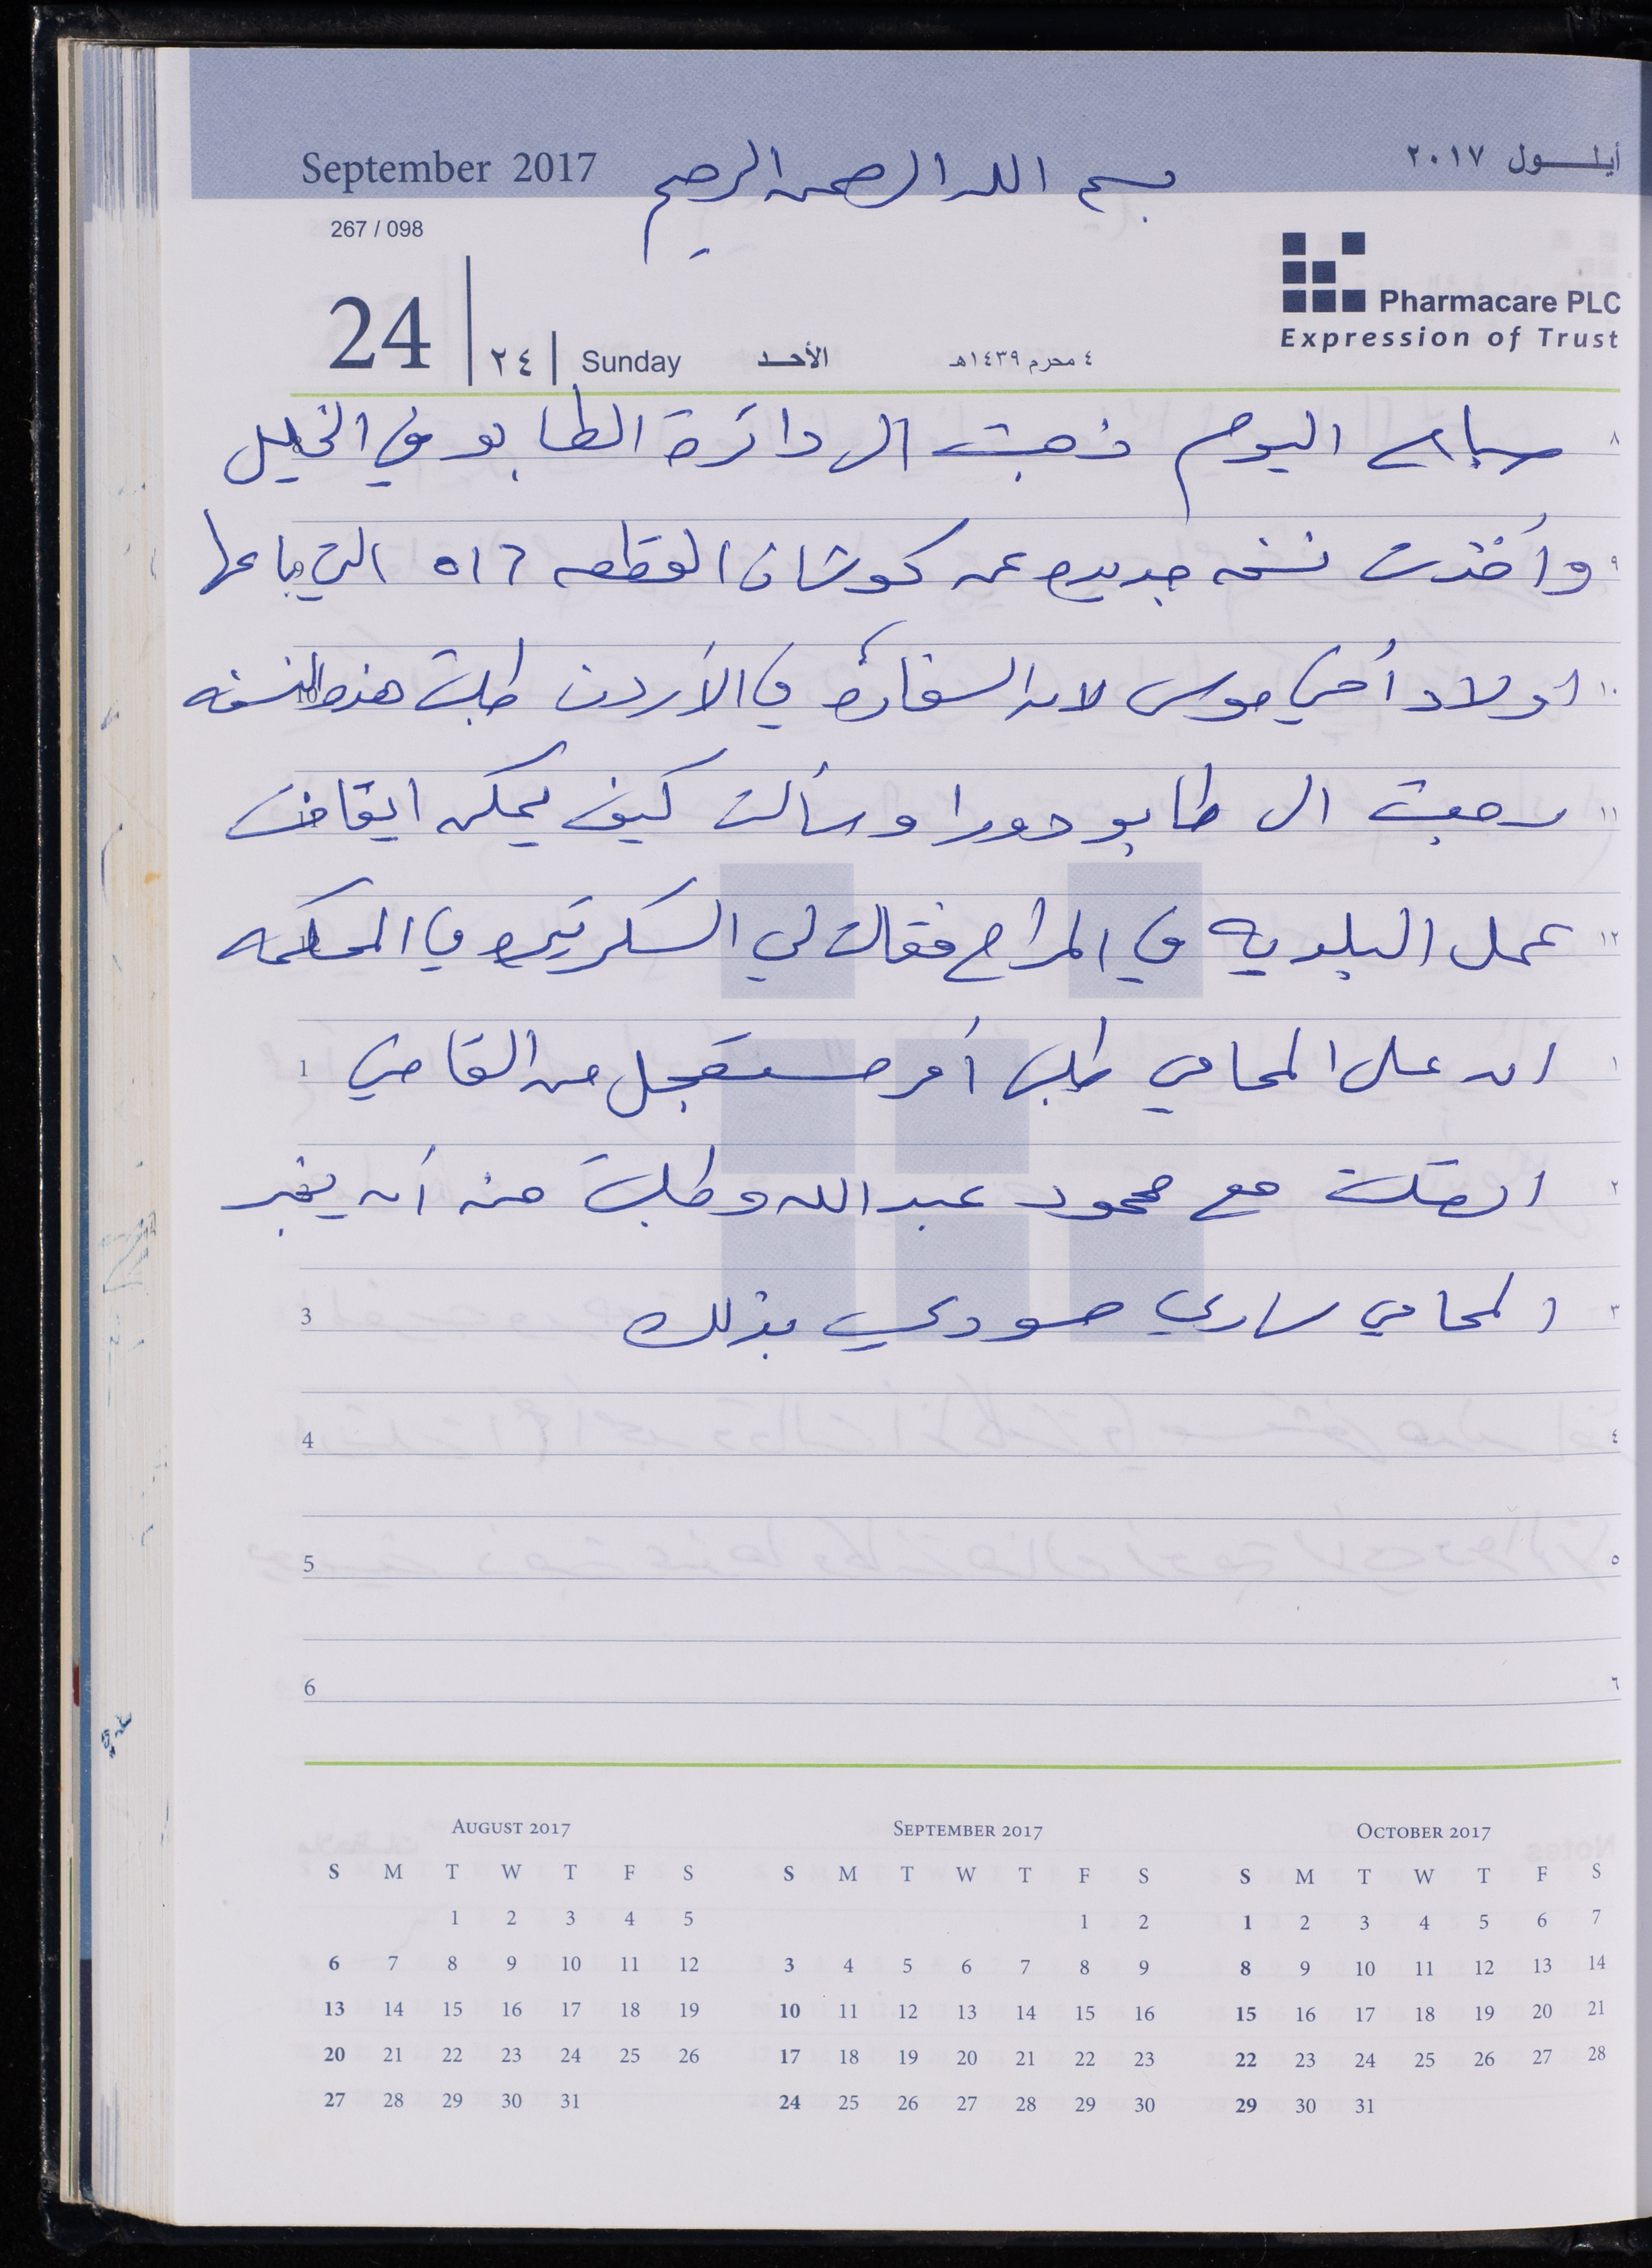 September 2017
أيلول ٢٠١٧
بسم الله الرحمن الرحيم
267 / 098
Pharmacare PLC
Expression of Trust
24 | ٢٤ | Sunday الأحد ٤ محرم ١٤٣٩هـ
٨ صباح اليوم ذهبت الى دائرة الطابو في الخليل
٩ وأخذت نسخه جديده عن كوشان القطعه ٥١٦ التي باعها
١٠ اولاد أخي موسى لان السفاره في الأردن طلبت هذه النسخه
١١ رجعت الى طابو دورا وسألت كيف يمكن ايقاف
١٢ عمل البلديه في المراح فقالت لي السكرتيره في المحكمه
١ ان على المحامي طلب أمر مستعجل من القاضي 1
٢ اتصلت مع محمود عبدالله وطلبت منه أن يخبر
٣ المحامي ساري حمودي بذلك 3
4 ٤
5 ٥
6 ٦
August 2017
S M T W T F S
1 2 3 4 5
6 7 8 9 10 11 12
13 14 15 16 17 18 19
20 21 22 23 24 25 26
27 28 29 30 31
September 2017
S M T W T F S
1 2
3 4 5 6 7 8 9
10 11 12 13 14 15 16
17 18 19 20 21 22 23
24 25 26 27 28 29 30
October 2017
S M T W T F S
1 2 3 4 5 6 7
8 9 10 11 12 13 14
15 16 17 18 19 20 21
22 23 24 25 26 27 28
29 30 31